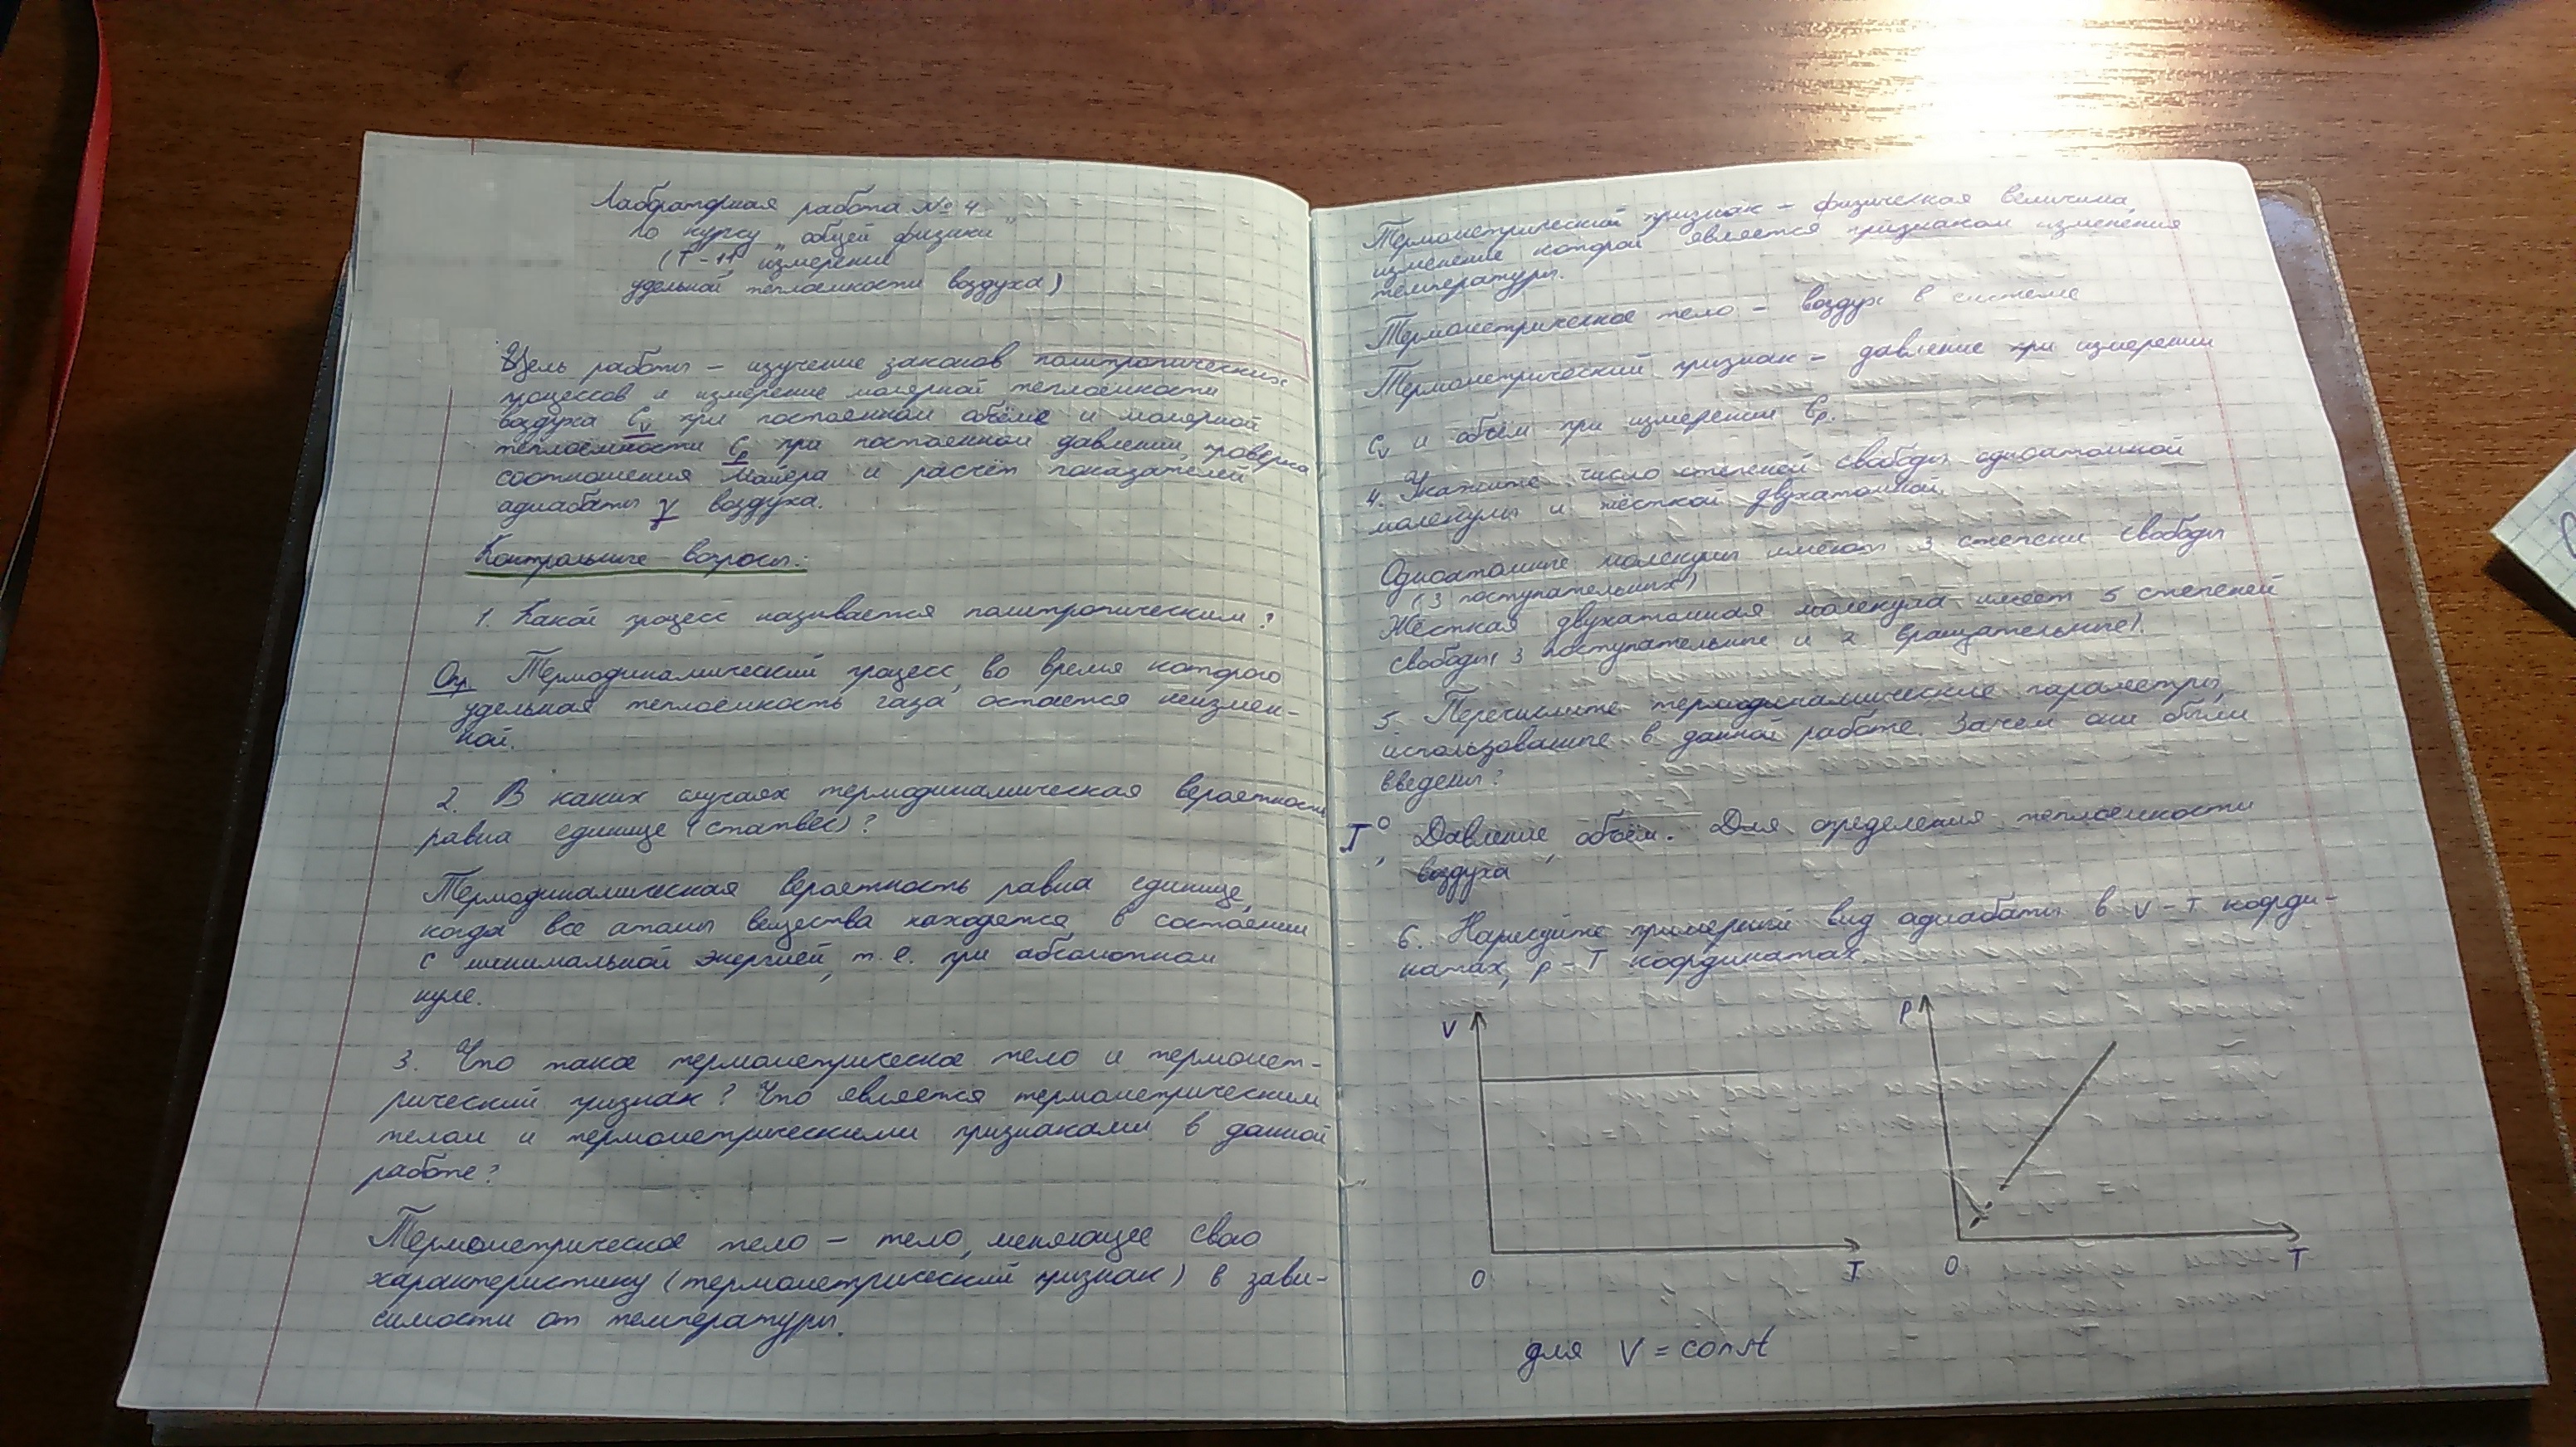 Лабораторная работа № 4
по курсу „общей физики"
(Т-11, измерение
удельной теплоёмкости воздуха)
Цель работы – изучение законов политропических
процессов и измерение молярной теплоёмкости
воздуха Cv при постоянном объёме и молярной
теплоёмкости Cp при постоянном давлении, проверка
соотношения Майера и расчёт показателей
адиабаты γ воздуха.
Контрольные вопросы:
1. Какой процесс называется политропическим?
Опр. Термодинамический процесс, во время которого
удельная теплоёмкость газа остается неизмен-
ной.
2. В каких случаях термодинамическая вероятность
равна единице (статвес)?
Термодинамическая вероятность равна единице,
когда все атомы вещества находятся в состоянии
с минимальной энергией, т.е. при абсолютном
нуле.
3. Что такое термометрическое тело и термомет-
рический признак? Что является термометрическим
телом и термометрическими признаками в данной
работе?
Термометрическое тело – тело, меняющее свою
характеристику (термометрический признак) в зави-
симости от температуры.
Термометрический признак – физическая величина,
изменение которой является признаком изменения
температуры.
Термометрическое тело – воздух в системе
Термометрический признак – давление при измерении
Cv и объём при измерении Cp.
4. Укажите число степеней свободы одноатомной
молекулы и жёсткой двухатомной.
Одноатомные молекулы имеют 3 степени свободы
(3 поступательных)
Жёсткая двухатомная молекула имеет 5 степеней
свободы (3 поступательные и 2 вращательные).
5. Перечислите термодинамические параметры,
использованные в данной работе. Зачем они были
введены?
T°, Давление, объём. Для определения теплоёмкости
воздуха
6. Нарисуйте примерный вид адиабаты в V-T коорди-
натах, p-T координатах.
V
T
0
P
T
0
для V = const